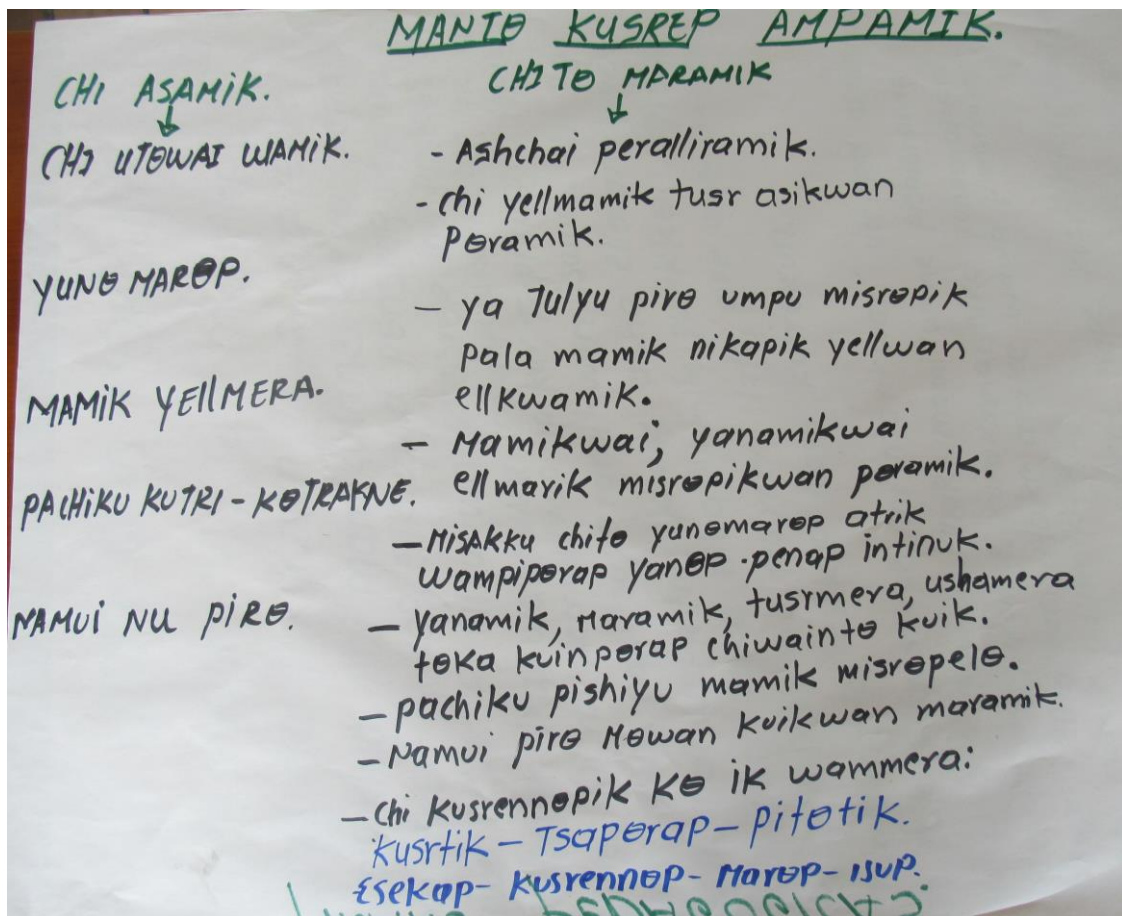 MANTɵ KUSREP AMPAMIK.
CHI ASAMIK.
CHI UTɵWAI WAMIK.
YUNɵ MARɵP.
MAMIK YEllMERA.
PACHIKU KUTRI - KɵTRAKNE.
NAMUI NU PIRɵ.
CHI Tɵ MARAMIK
- Ashchai peralliramik.
- chi yellmamik tusr asikwan
pɵramik.
- ya Tulyu pirɵ umpu misrɵpik
pala mamik nikapik yellwan
ellkwamik.
- Mamikwai, yanamikwai
ellmarik misrɵpikwan pɵramik.
- Misakku chitɵ yunɵmarɵp atrik
wampipɵrap yanɵp penap intinuk.
- yanamik, maramik, tusrmera, ushamera
tɵka kuinpɵrap chiwaintɵ kuik.
- pachiku pishiyu mamik misrɵpelɵ.
- Namui pirɵ Mɵwan kuikwan maramik.
- Chi kusrennɵpik Kɵ ik wammera:
Kusrtik - Tsapɵrap - pitɵtik.
Esekap - kusrennɵp - Marɵp - isup.